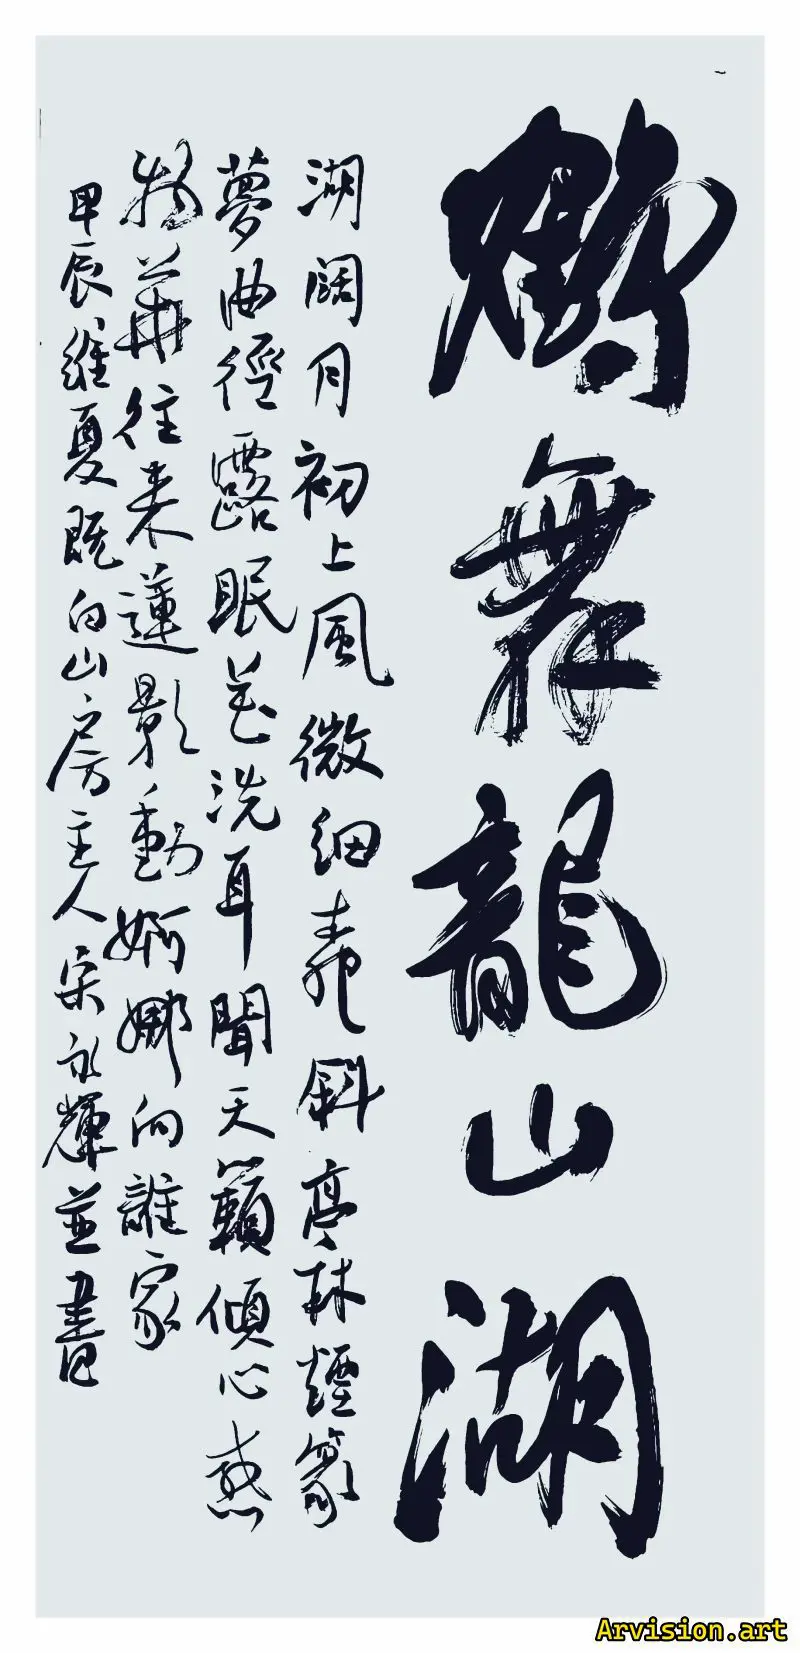 鶴舞龍山湖
湖闊月初上風微細斜亭林煙篆
夢曲徑露眠花洗耳聞天籟傾心感
物華往來蓮影動婀娜向誰家
甲辰維夏既白山房主人宋永輝並書
Arvision.art